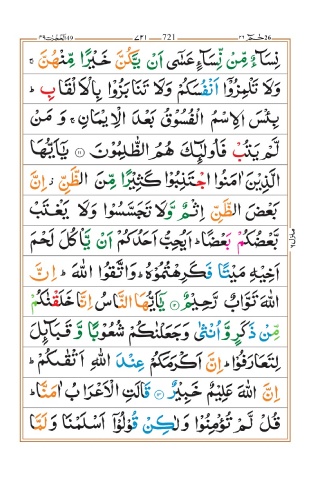 حٰمٓ ٢٦ ٧٢١ 721 الحجرات ٤٩
نِسَآءٌ مِّنْ نِّسَآءٍ عَسٰٓى اَنْ يَّكُنَّ خَيْرًا مِّنْهُنَّ ۚ
وَلَا تَلْمِزُوْٓا اَنْفُسَكُمْ وَلَا تَنَابَزُوْا بِالْاَلْقَابِ ؕ
بِئْسَ الِاسْمُ الْفُسُوْقُ بَعْدَ الْاِيْمَانِ ۚ وَمَنْ
لَّمْ يَتُبْ فَاُولٰٓئِكَ هُمُ الظّٰلِمُوْنَ ۝۱۱ يٰٓاَيُّهَا
الَّذِيْنَ اٰمَنُوا اجْتَنِبُوْا كَثِيْرًا مِّنَ الظَّنِّ ؗ اِنَّ
بَعْضَ الظَّنِّ اِثْمٌ وَّلَا تَجَسَّسُوْا وَلَا يَغْتَبْ
بَّعْضُكُمْ بَعْضًا ؕ اَيُحِبُّ اَحَدُكُمْ اَنْ يَّاْكُلَ لَحْمَ
اَخِيْهِ مَيْتًا فَكَرِهْتُمُوْهُ ؕ وَاتَّقُوا اللّٰهَ ؕ اِنَّ
اللّٰهَ تَوَّابٌ رَّحِيْمٌ ۝۱۲ يٰٓاَيُّهَا النَّاسُ اِنَّا خَلَقْنٰكُمْ
مِّنْ ذَكَرٍ وَّاُنْثٰى وَجَعَلْنٰكُمْ شُعُوْبًا وَّقَبَآئِلَ
لِتَعَارَفُوْا ؕ اِنَّ اَكْرَمَكُمْ عِنْدَ اللّٰهِ اَتْقٰىكُمْ ؕ
اِنَّ اللّٰهَ عَلِيْمٌ خَبِيْرٌ ۝۱۳ قَالَتِ الْاَعْرَابُ اٰمَنَّا ؕ
قُلْ لَّمْ تُؤْمِنُوْا وَلٰكِنْ قُوْلُوْٓا اَسْلَمْنَا وَلَمَّا